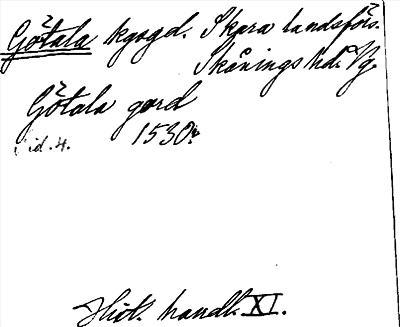 Götala kgsgd. Skara landsförs.
Skånings hd. Vg.
Götala gord
sid. 4. 1530
Hist. handl. XI.